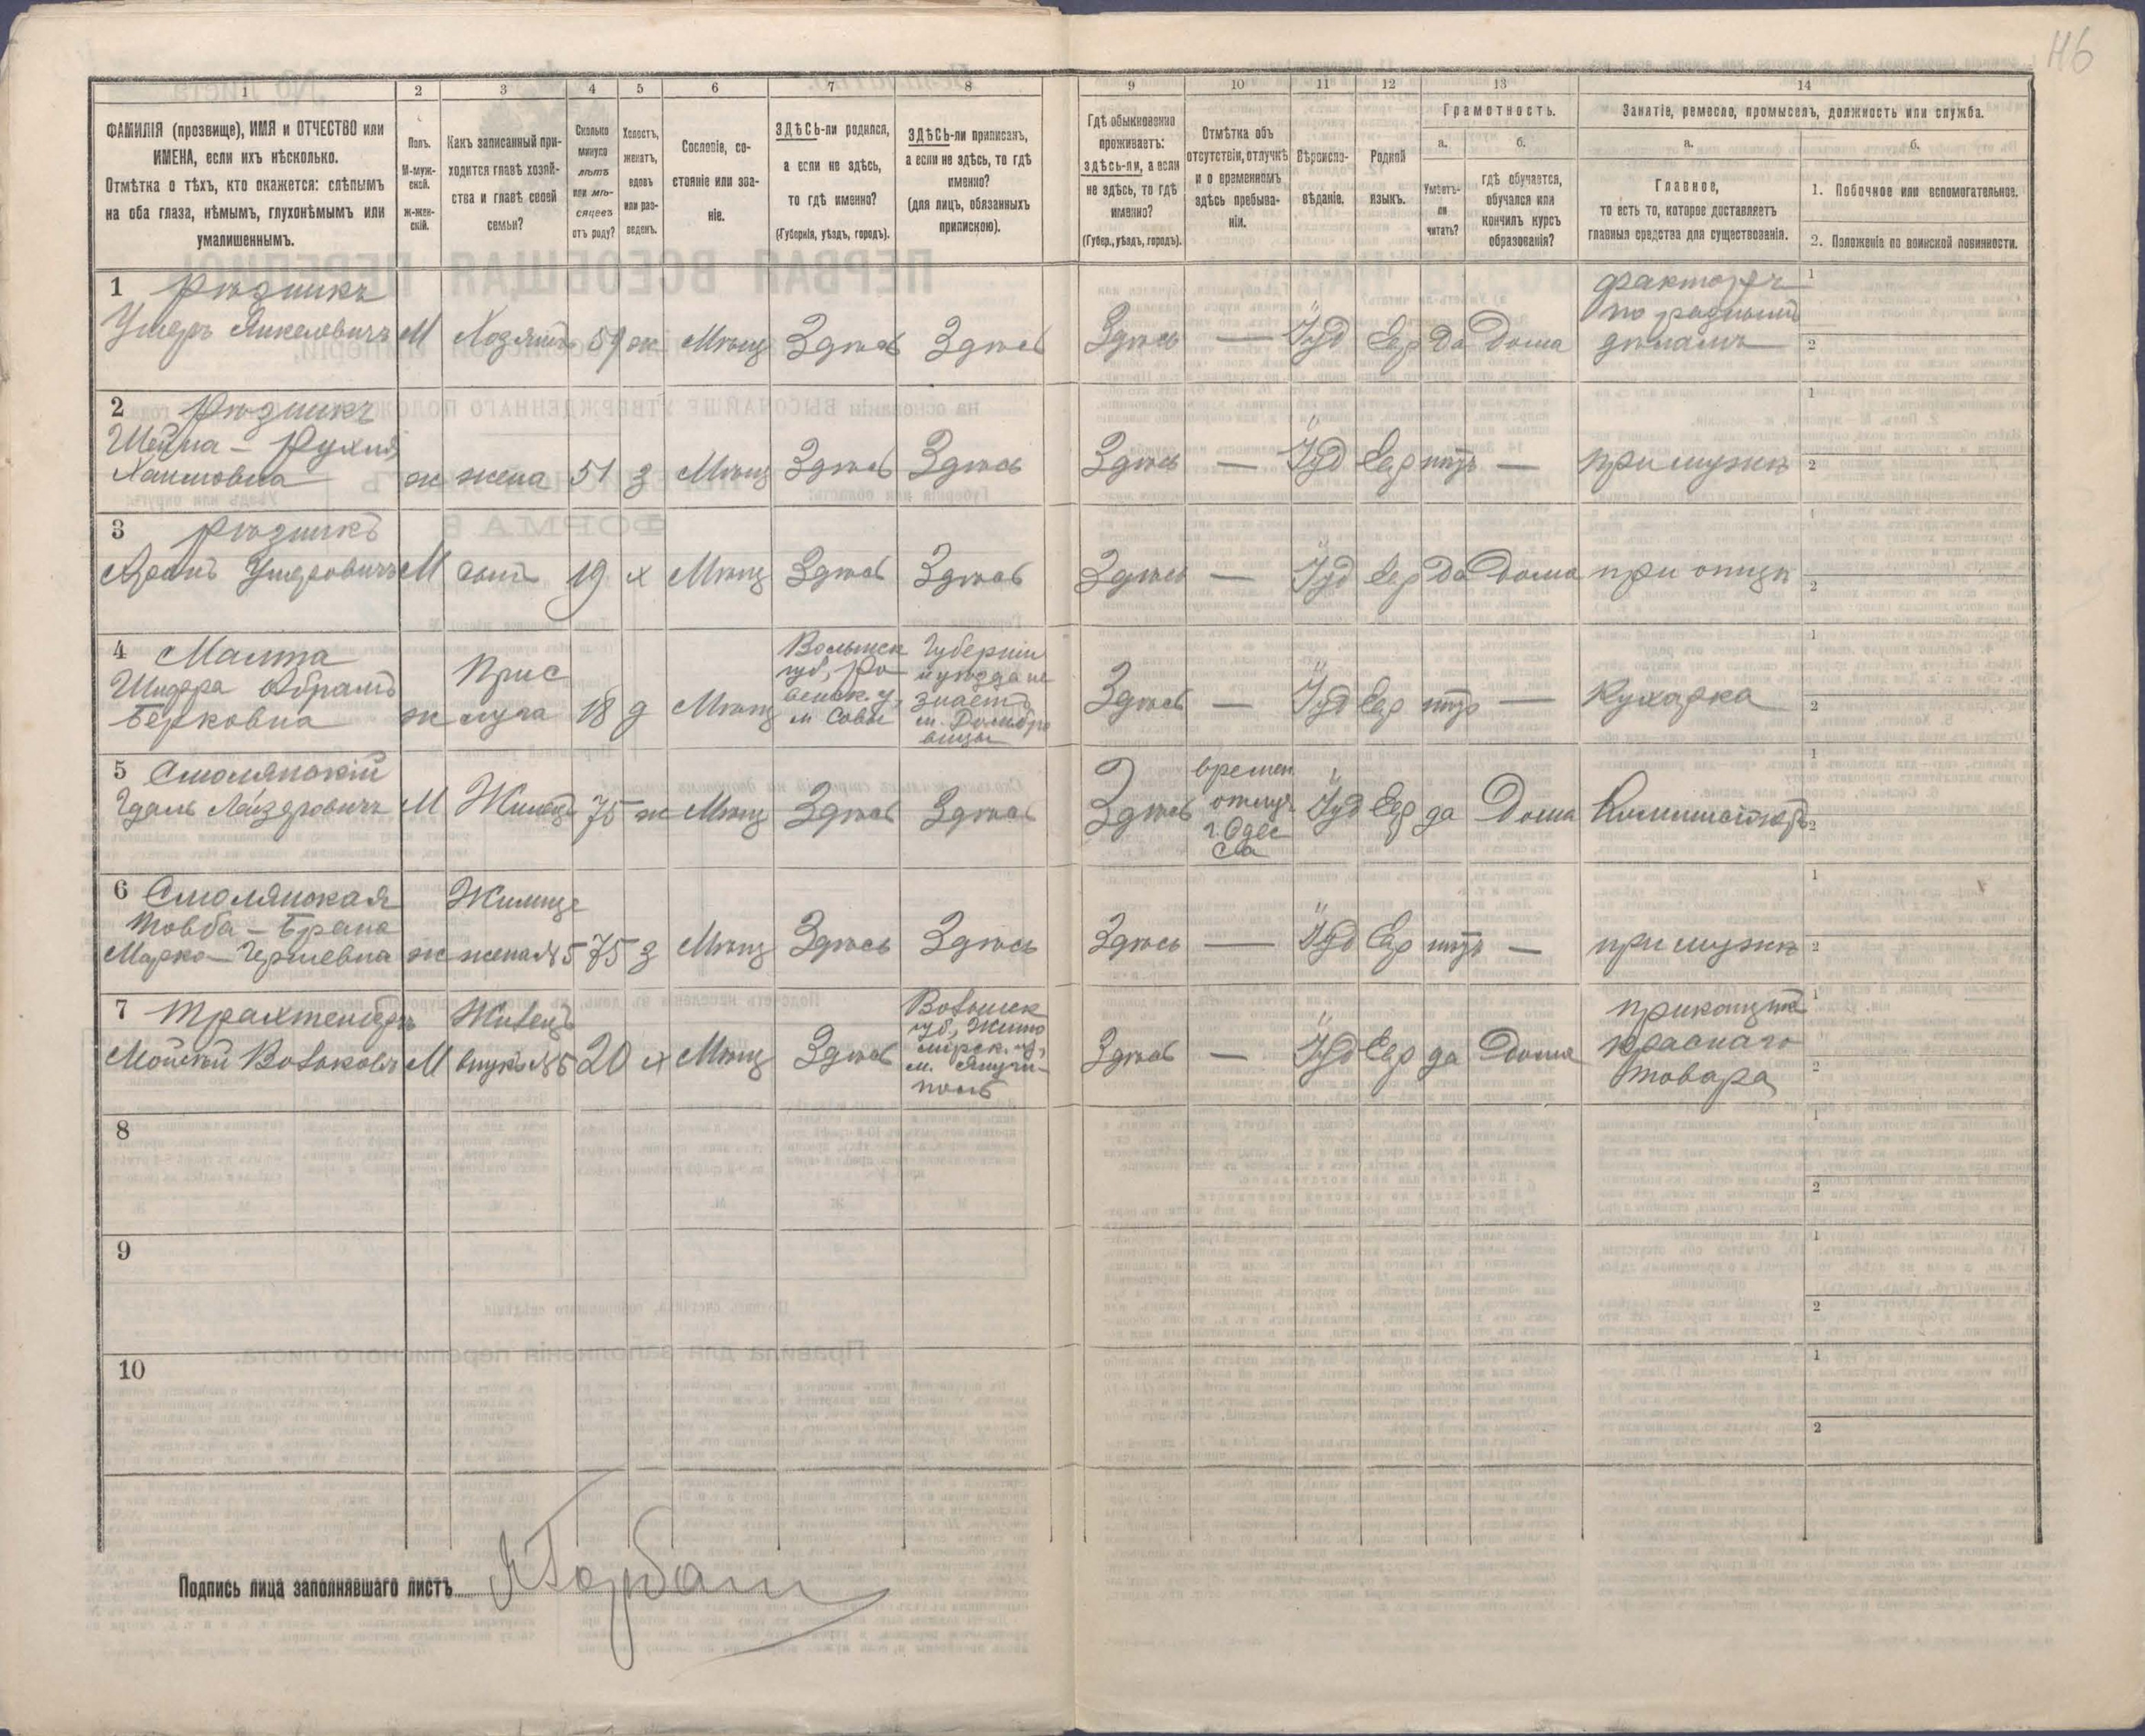 Н6
1
2
3
4
5
6
7
8
9
10
11
12
13
14
ФАМИЛІЯ (прозвище), ИМЯ и ОТЧЕСТВО или
ИМЕНА, если ихъ нѣсколько.
Отмѣтка о тѣхъ, кто окажется: слѣпымъ
на оба глаза, нѣмымъ, глухонѣмымъ или
умалишеннымъ.
Полъ.
М-муж-
ской.
Ж-жен-
скій.
Какъ записанный при-
ходится главѣ хозяй-
ства и главѣ своей
семьи?
Сколько
минуло
лѣтъ
или мѣ-
сяцевъ
отъ роду?
Холостъ,
женатъ,
вдовъ
или раз-
веденъ.
Сословіе, со-
стояніе или зва-
ніе.
ЗДѢСЬ-ли родился,
а если не здѣсь,
то гдѣ именно?
(Губернія, уѣздъ, городъ).
ЗДѢСЬ-ли приписанъ,
а если не здѣсь, то гдѣ
именно?
(для лицъ, обязанныхъ
припискою).
Гдѣ обыкновенно
проживаетъ:
здѣсь-ли, а если
не здѣсь, то гдѣ
именно?
(Губер., уѣздъ, городъ).
Отмѣтка объ
отсутствіи, отлучкѣ
и о временномъ
здѣсь пребыва-
ніи.
Вѣроиспо-
вѣданіе.
Родной
языкъ.
Грамотность.
а.
Умѣетъ-
ли
читать?
б.
гдѣ обучается,
обучался или
кончилъ курсъ
образованія?
Занятіе, ремесло, промыселъ, должность или служба.
а.
Главное,
то есть то, которое доставляетъ
главныя средства для существованія.
б.
1. Побочное или вспомогательное.
2. Положеніе по воинской повинности.
1 Рѣзникъ
Ушеръ Янкелевичъ М Хозяинъ 59 ж Мѣщ Здѣсь Здѣсь Здѣсь — Іуд Евр Да Дома
факторъ
по разнымъ
дѣламъ
1
2
2 Рѣзникъ
Шейма - Рухля
Хаимовна ж жена 51 з Мѣщ Здѣсь Здѣсь Здѣсь — Іуд Евр нѣтъ — при мужѣ
1
2
3 Рѣзникъ
Абрамъ Ушеровичъ М сынъ 19 х Мѣщ Здѣсь Здѣсь Здѣсь — Іуд Евр Да Дома при отцѣ
1
2
4
Шифра Абрамъ
Берковна ж
Прис
луга 18 д Мѣщ
Волынск
губ, Ро
венск. у,
м
Губерніи
и уѣзда не
знаетъ
м. Домбро
вицы
Здѣсь — Іуд Евр нѣтъ — Кухарка
1
2
5 Смолянскій
Гдаль Лейзеровичъ М Жилецъ 75 ж Мѣщ Здѣсь Здѣсь Здѣсь
времен.
отлуч.
г. Одес
са
Іуд Евр да Дома
1
2
6 Смолянская
Товба - Брана
Марко - Гершевна ж
Жилица
жена №5 75 з Мѣщ Здѣсь Здѣсь Здѣсь — Іуд Евр нѣтъ — при мужѣ
1
2
7 Трахтенбергъ
Мойсей Вольковъ М
Жилецъ
внукъ №5 20 х Мѣщ Здѣсь
Волынск
губ., Жито
мірск. у,
м. Янушь-
поль
Здѣсь — Іуд Евр да Дома
прикащикъ
краснаго
товара
1
2
8
1
2
9
1
2
10
1
2
Подпись лица заполнявшаго листъ